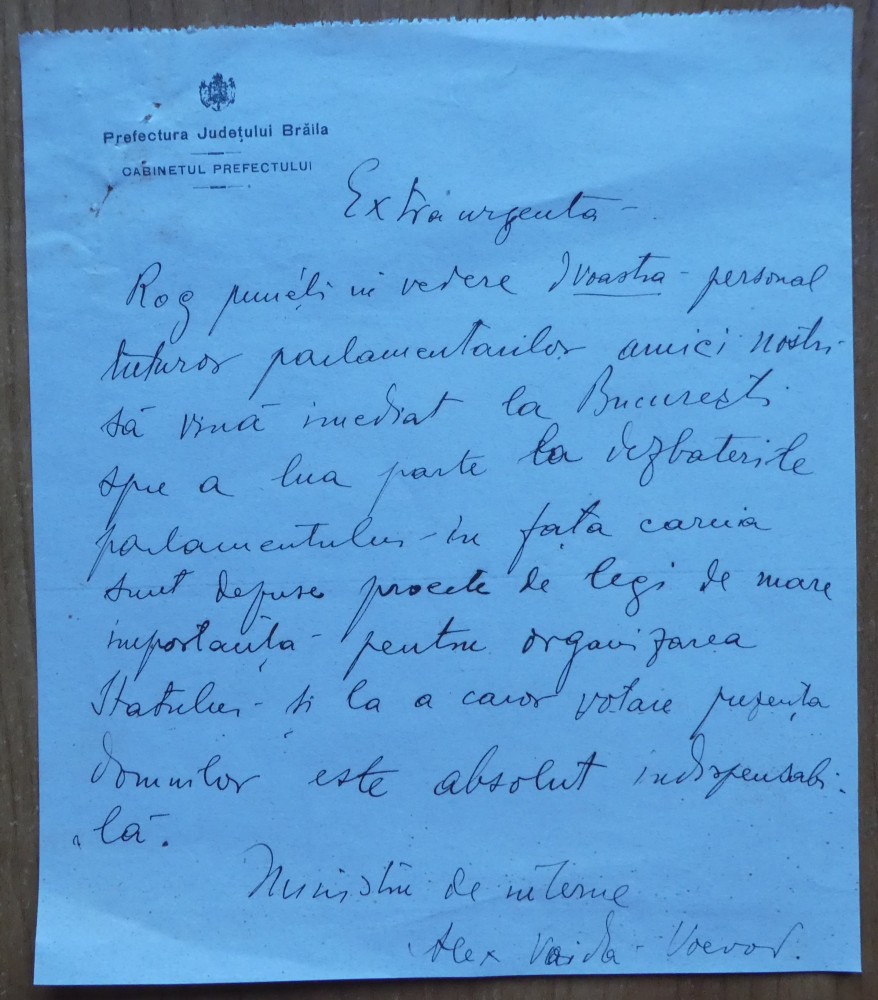 Prefectura Județului Brăila
CABINETUL PREFECTULUI
Extra urgentă -
Rog puneți in vedere dvoastra - personal
tuturor parlamentarilor amici noștri
să vină imediat la București
spre a lua parte la dezbaterile
parlamentului - in fața caruia
sunt depuse proecte de legi de mare
importanța - pentru organizarea
Statului - și la a caror votare prezența
domnilor este absolut indispensabi-
lă.
Ministru de interne
Alex Vaida - Voevod.